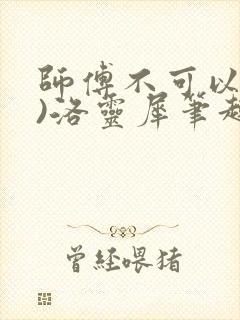 師傅不可以
)洛靈犀筆趣
曾經喂猪